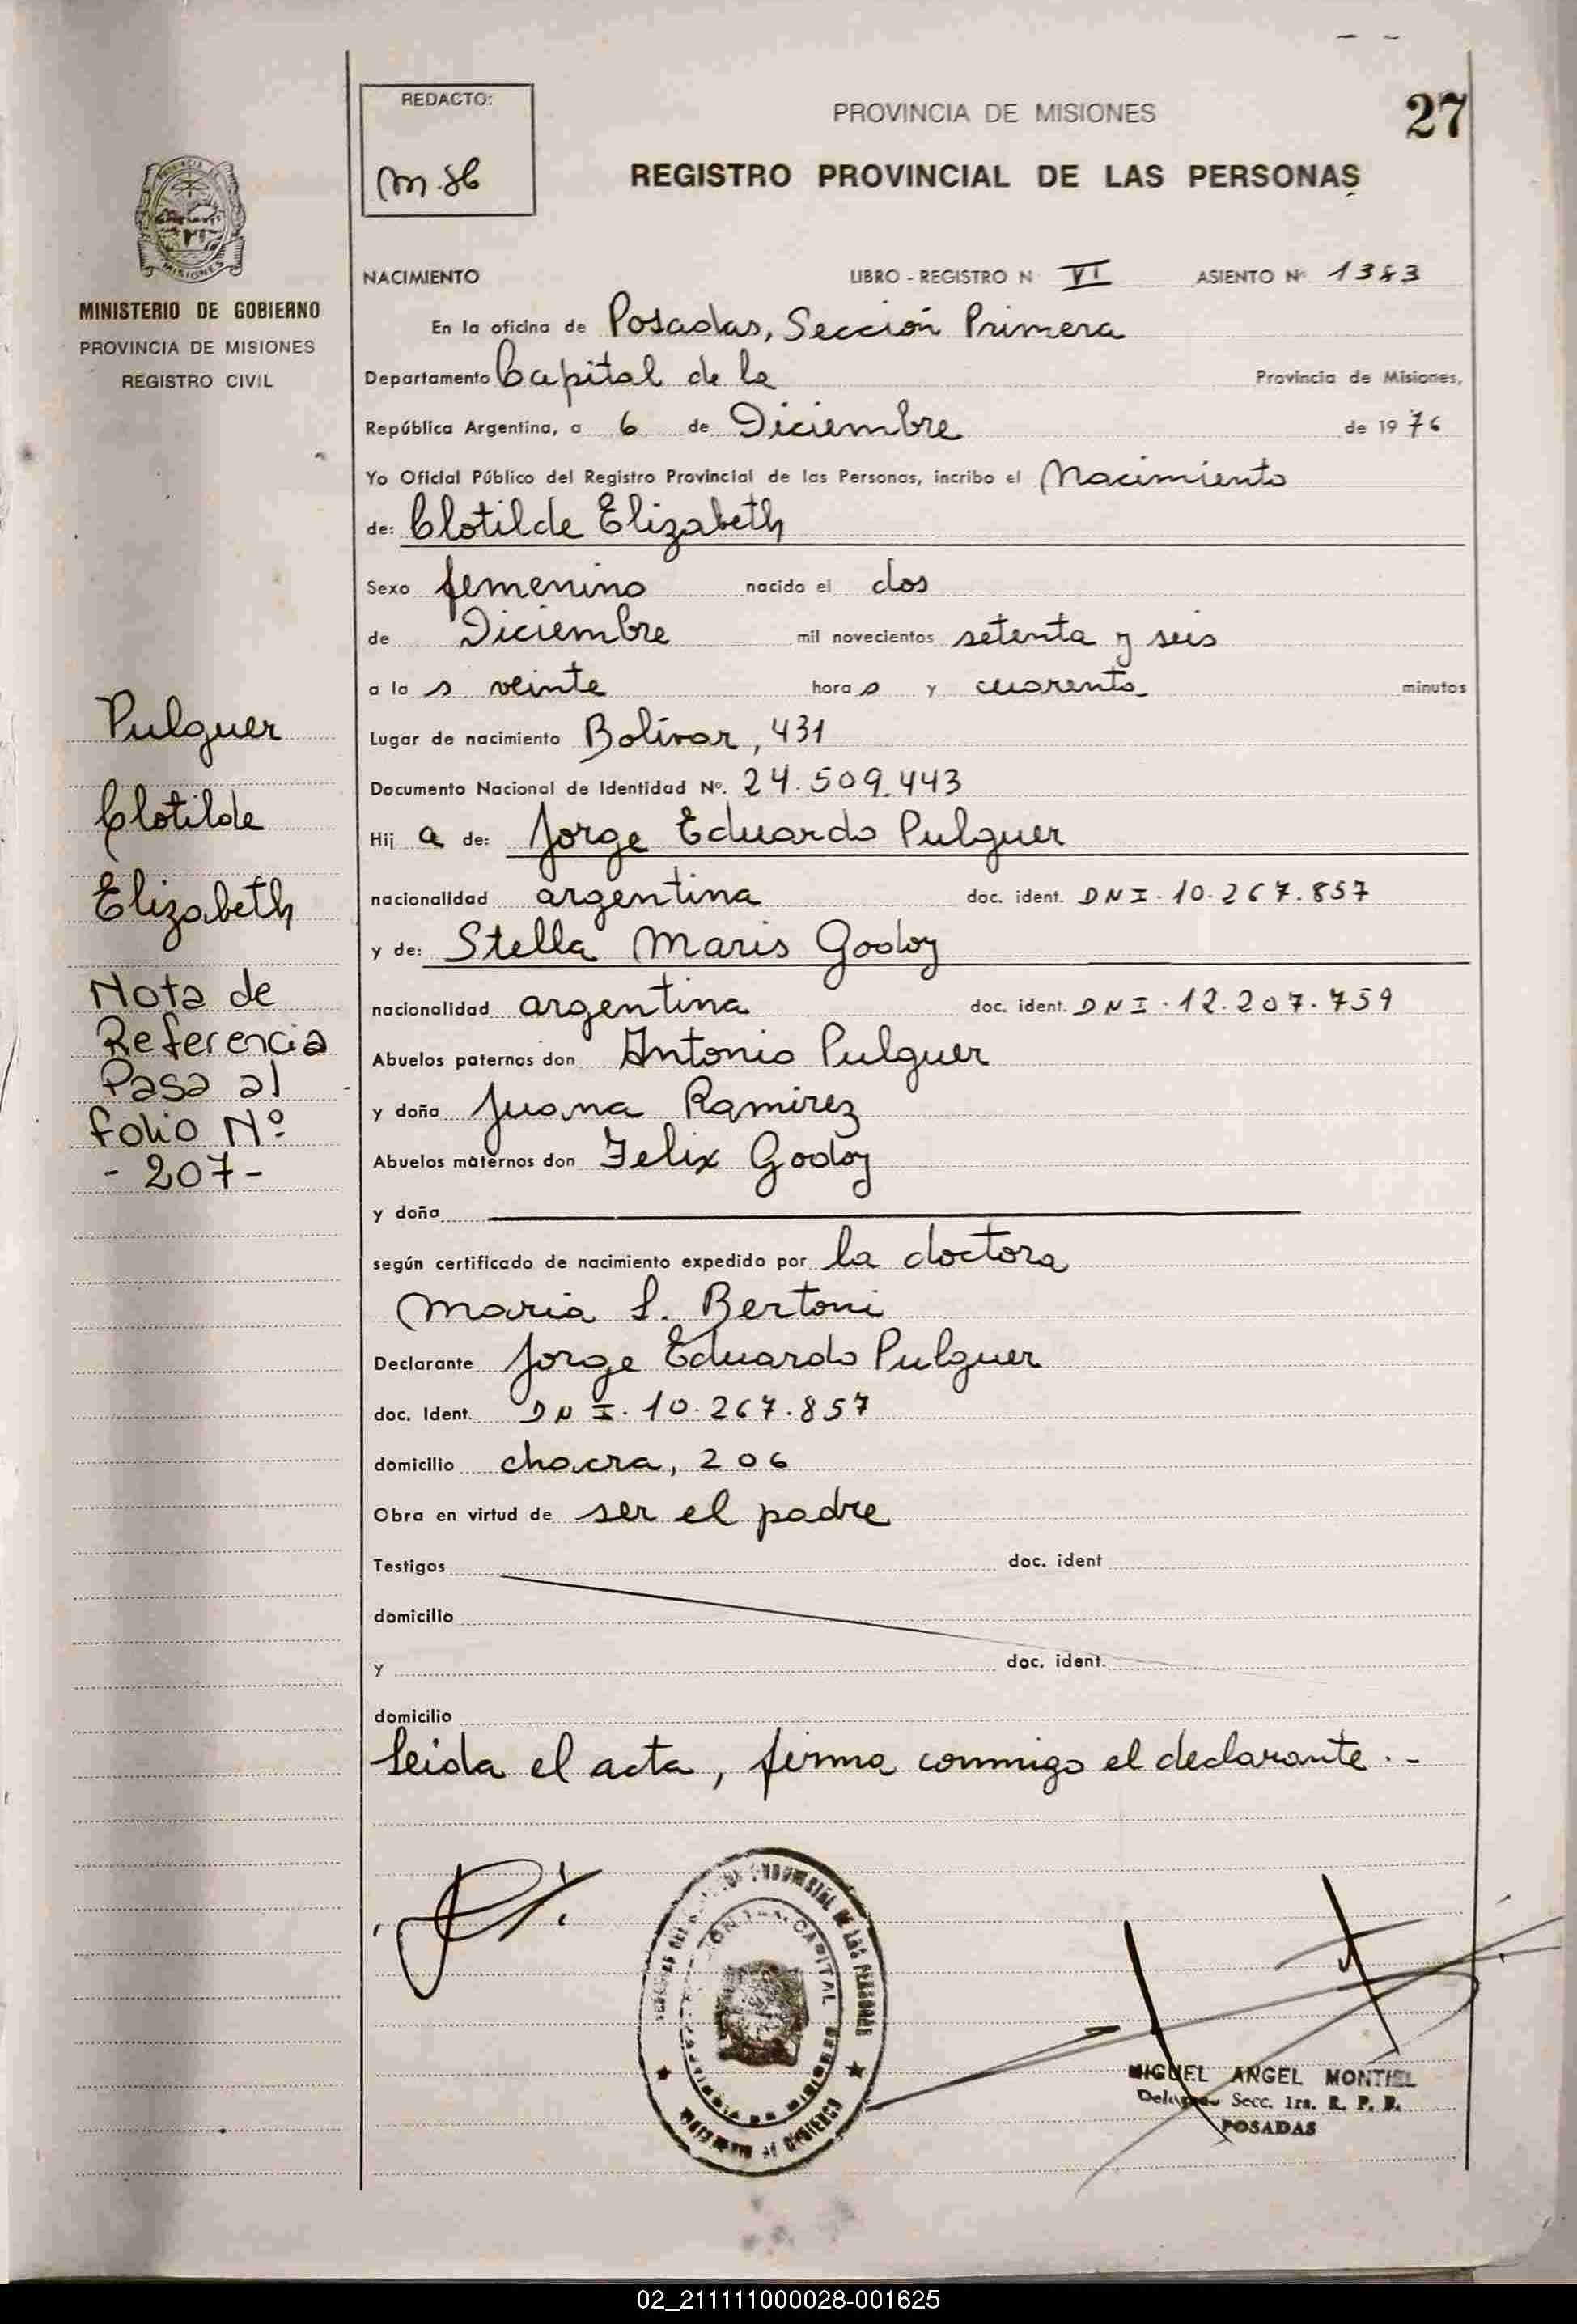 27
REDACTO:
PROVINCIA DE MISIONES
REGISTRO PROVINCIAL DE LAS PERSONAS
PROVINCIA
MISIONES
MINISTERIO DE GOBIERNO
PROVINCIA DE MISIONES
REGISTRO CIVIL
NACIMIENTO LIBRO - REGISTRO N VI ASIENTO Nº 1383
En la oficina de Posadas, Sección Primera
Departamento Capital de la Provincia de Misiones,
República Argentina, a 6 de Diciembre de 1976
Yo Oficial Público del Registro Provincial de las Personas, incribo el Nacimiento
de: Clotilde Elizabeth
Sexo femenino nacido el dos
de Diciembre mil novecientos setenta y seis
a la s veinte hora s y cuarenta minutos
Lugar de nacimiento Bolívar, 431
Documento Nacional de Identidad Nº. 24.509.443
Hij a de: Jorge Eduardo Pulguer
nacionalidad argentina doc. ident. DNI. 10.267.857
y de: Stella Maris Godoy
nacionalidad argentina doc. ident. DNI. 12.207.759
Abuelos paternos don Antonio Pulguer
y doña Juana Ramirez
Abuelos maternos don Felix Godoy
y doña
según certificado de nacimiento expedido por la doctora
Maria S. Bertoni
Declarante Jorge Eduardo Pulguer
doc. Ident. DNI. 10.267.857
domicilio chacra, 206
Obra en virtud de ser el padre
Testigos doc. ident
domicilio
y doc. ident.
domicilio
Leida el acta, firma conmigo el declarante..-
Pulguer
Clotilde
Elizabeth
Nota de
Referencia
Pasa al
folio Nº
- 207 -
CAPITAL
MIGUEL ANGEL MONTIEL
Secc. 1ra. R. P. P.
POSADAS
02_211111000028-001625